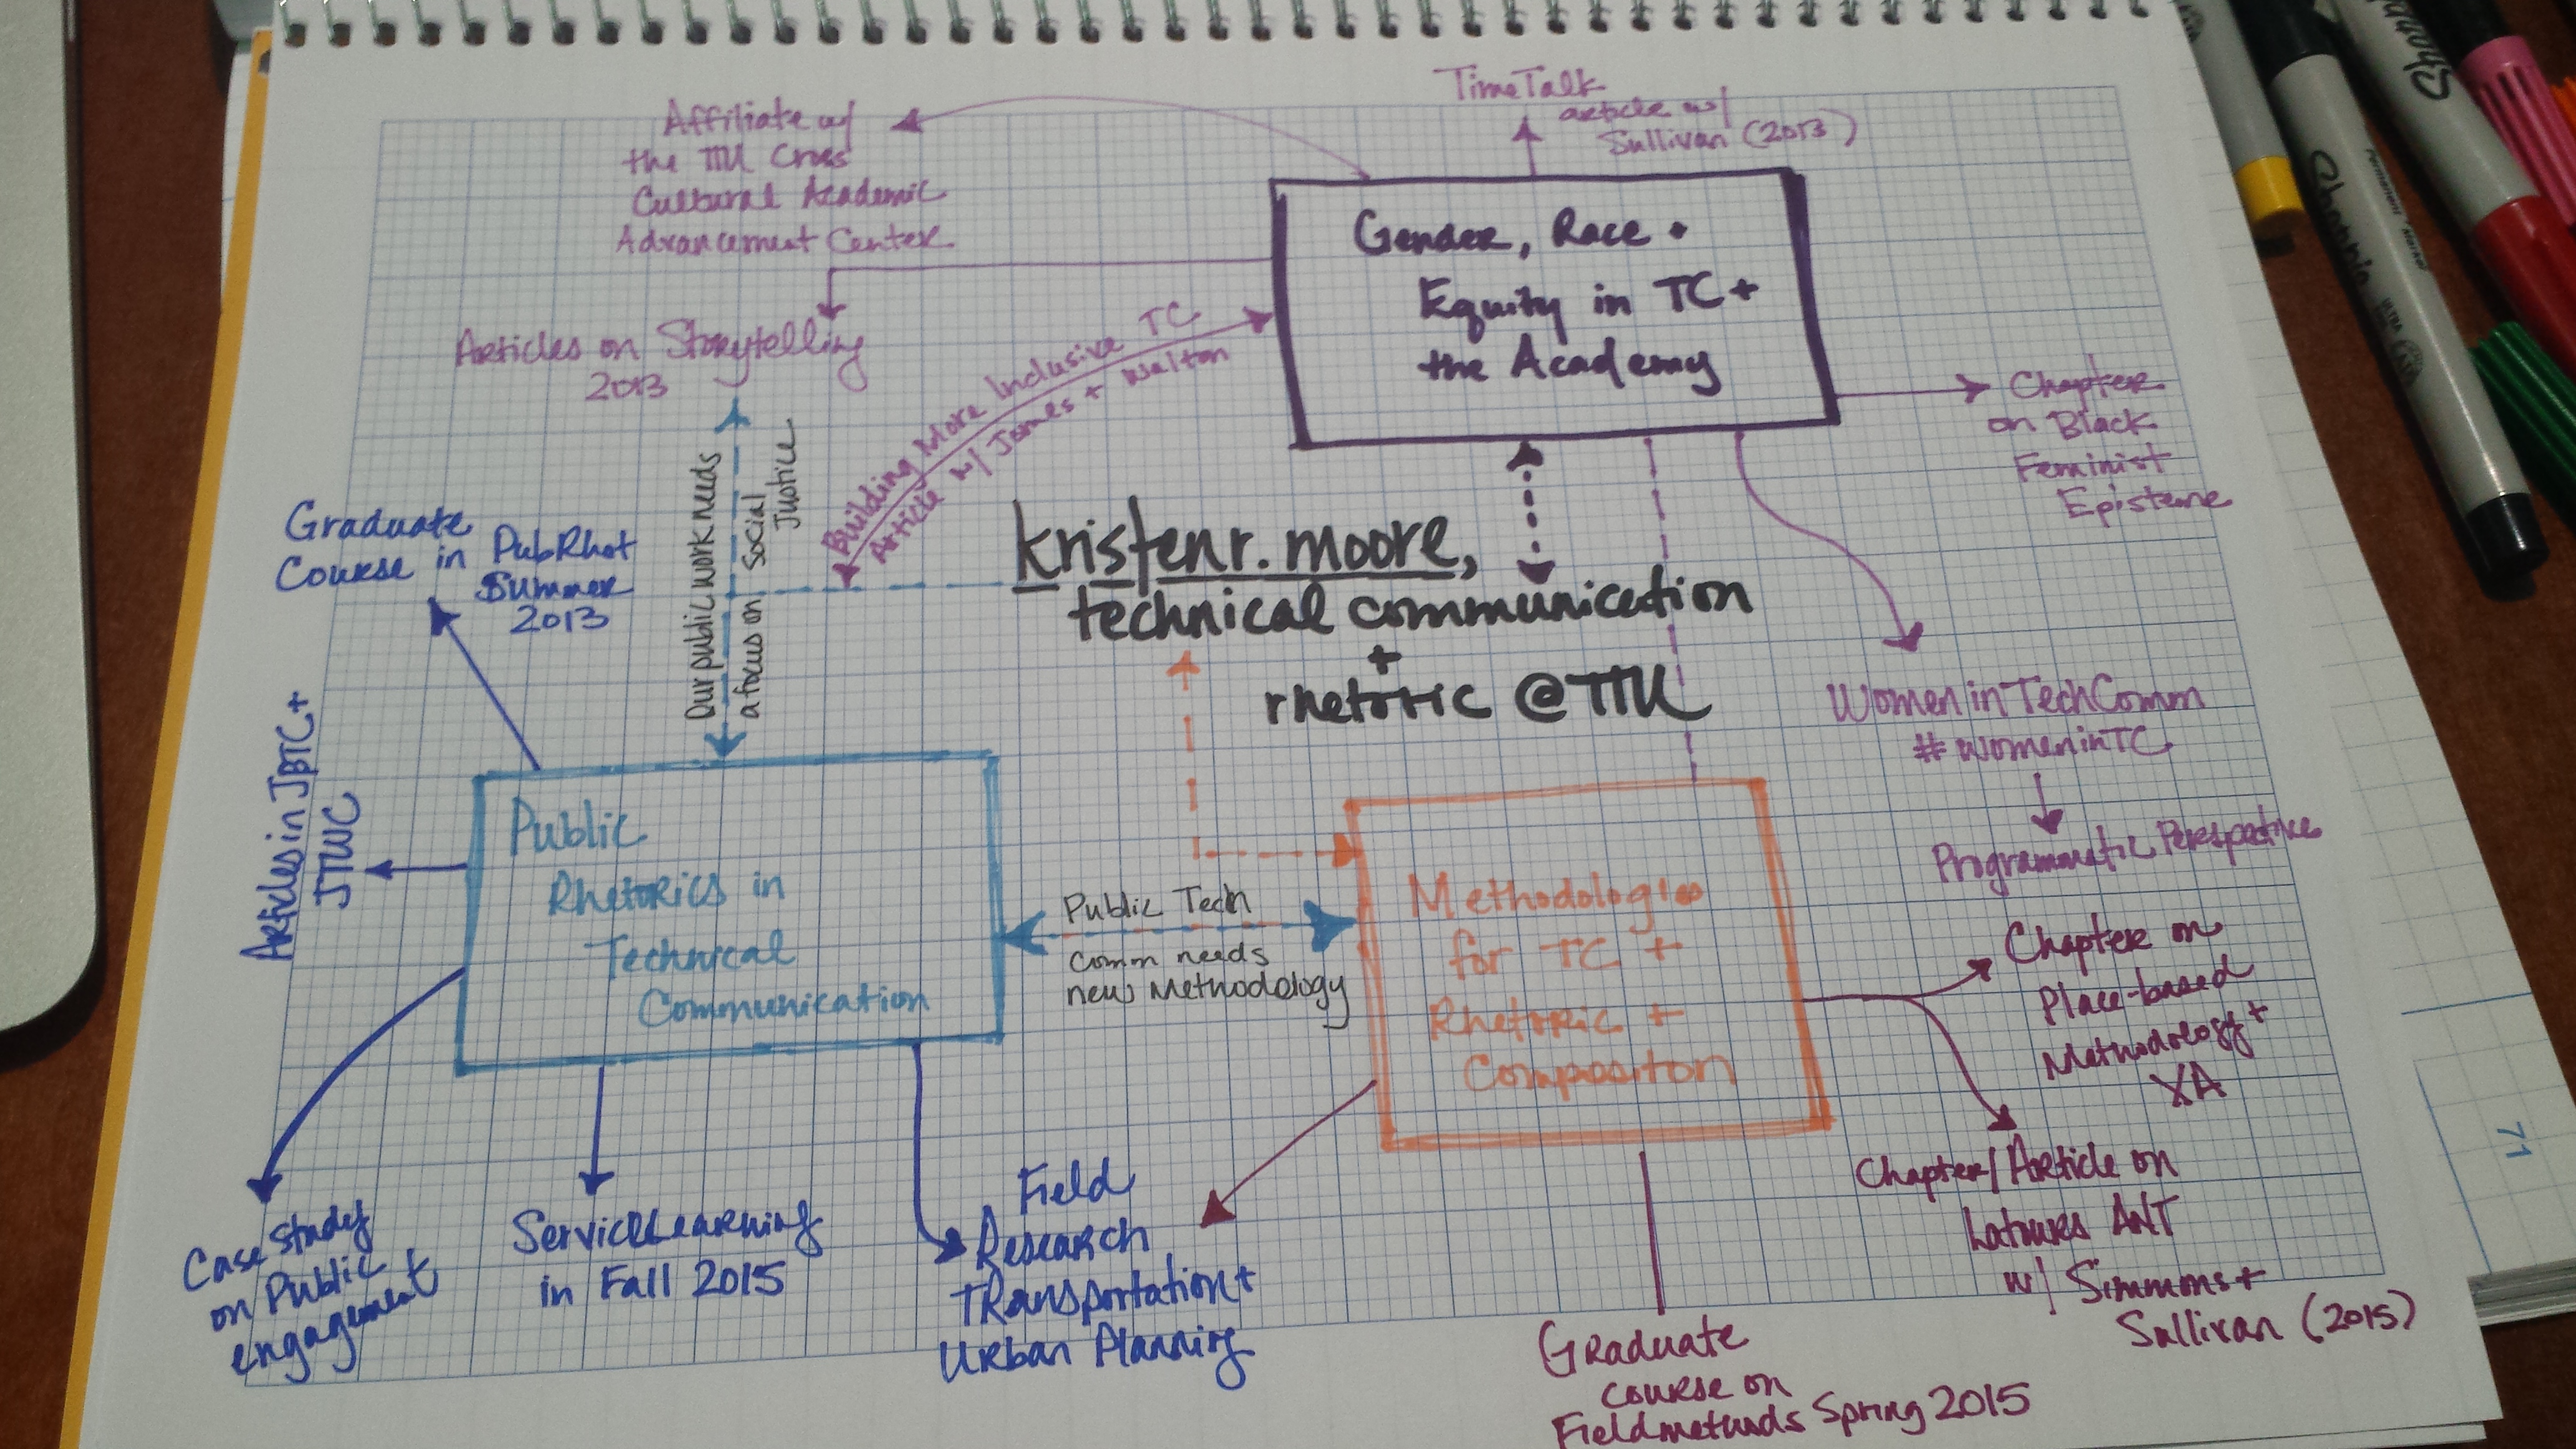 TimeTalk
article w/
Sullivan (2013)
Affiliate w/
the TTU Cross
Cultural Academic
Advancement Center
Gender, Race +
Equity in TC +
the Academy
Articles on Storytelling
2013
Building More Inclusive TC
Article w/ Jones + Walton
Chapter
on Black
Feminist
Episteme
Our public work needs
a focus on Social
Justice
Graduate
Course in PubRhet
Summer
2013
kristen r. moore,
technical communication
+
rhetoric @ TTU
Women in TechComm
#womeninTC
Programmatic Perspective
Articles in JBTC +
JTWC
Public
Rhetorics in
Technical
Communication
Public Tech
Comm needs
new Methodology
Methodologies
for TC +
Rhetoric +
Compositon
Chapter on
Place-based
Methodology +
XA
Chapter/Article on
Latours ANT
w/ Simmons +
Sullivan (2015)
Case Study
on Public
engagement
ServiceLearning
in Fall 2015
Field
Research
Transportation +
Urban Planning
Graduate
course on
Fieldmethods Spring 2015
71
Sharpie
Permanent Marker
Sharpie
ULTRA